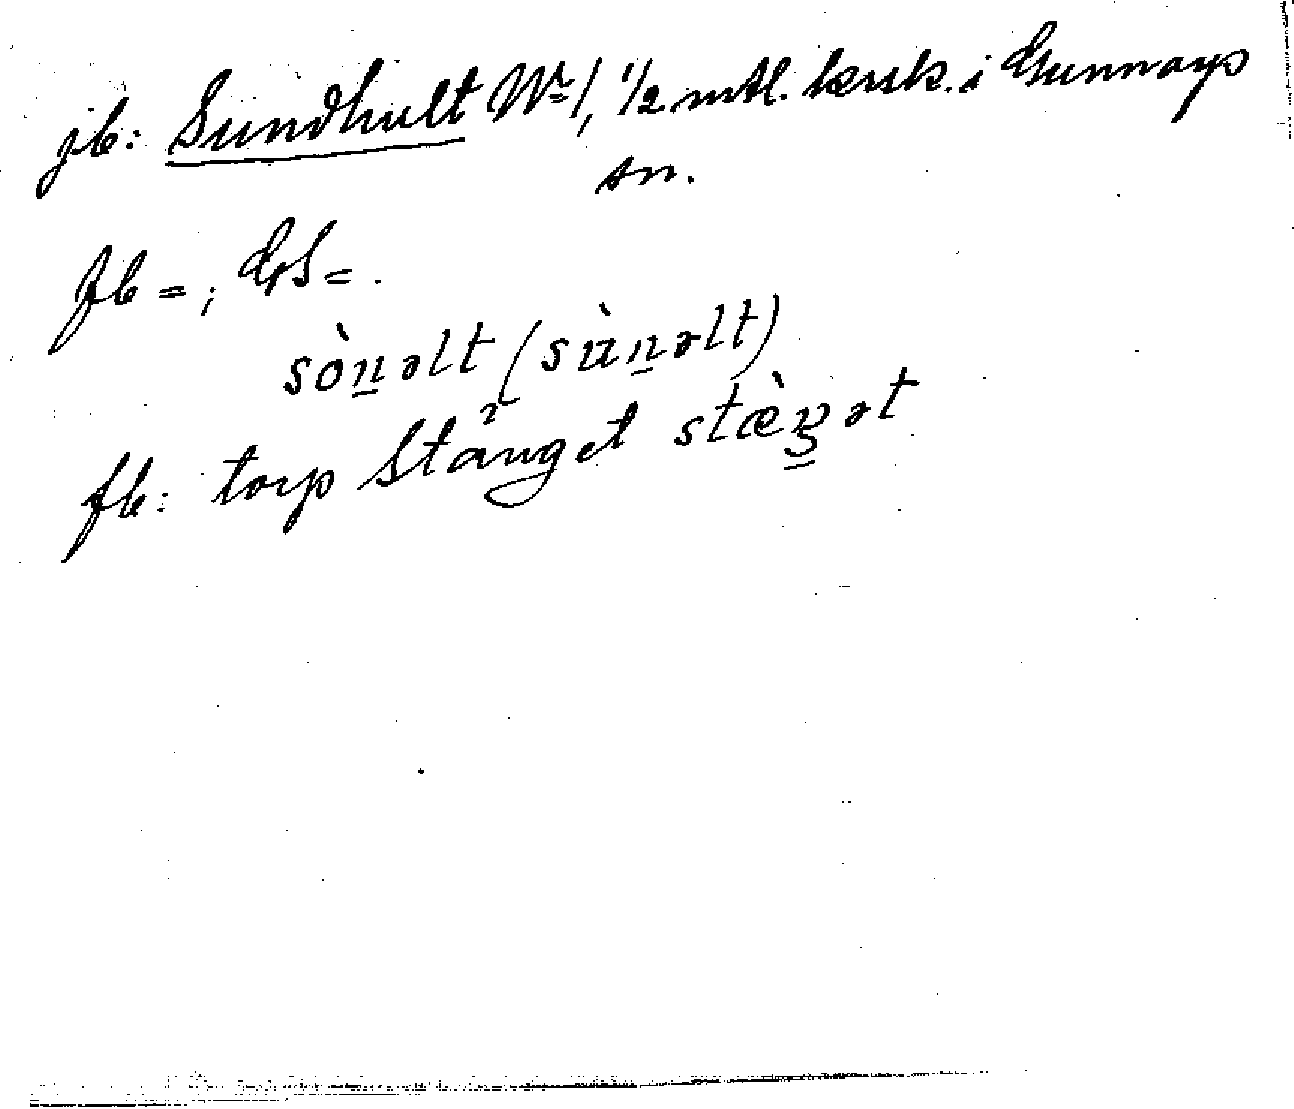 jb: Sundhult Nr 1, 1/2 mtl. krsk. i Gunnarps
sn.
fb = ; GS = .
sòn̲əlt (sùn̲əlt)
fb: torp Stånget stæ̀ŋ̲ət